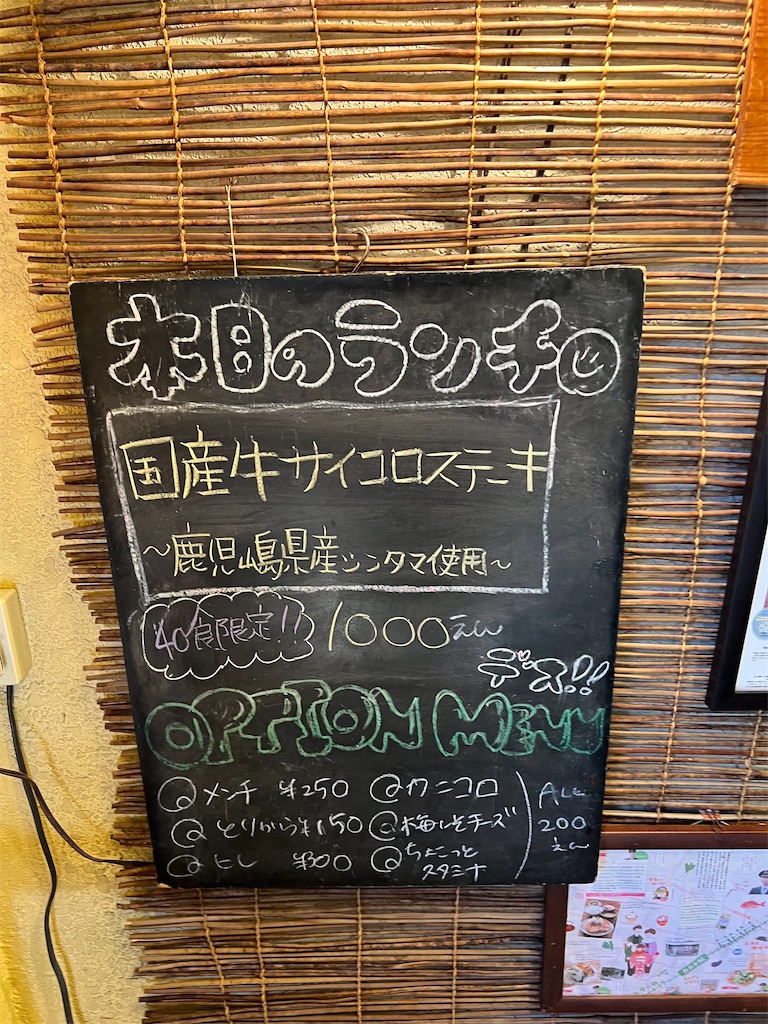 本日のランチ
国産牛サイコロステーキ
～鹿児島県産シンタマ使用～
40食限定!! 1000えん
デス!!
OPTION MENU
@メンチ ¥250 @カニコロ
@とりから¥150 @梅しそチーズ
@ヒレ ¥300 @ちょこっと
スタミナ
ALL
200
えん